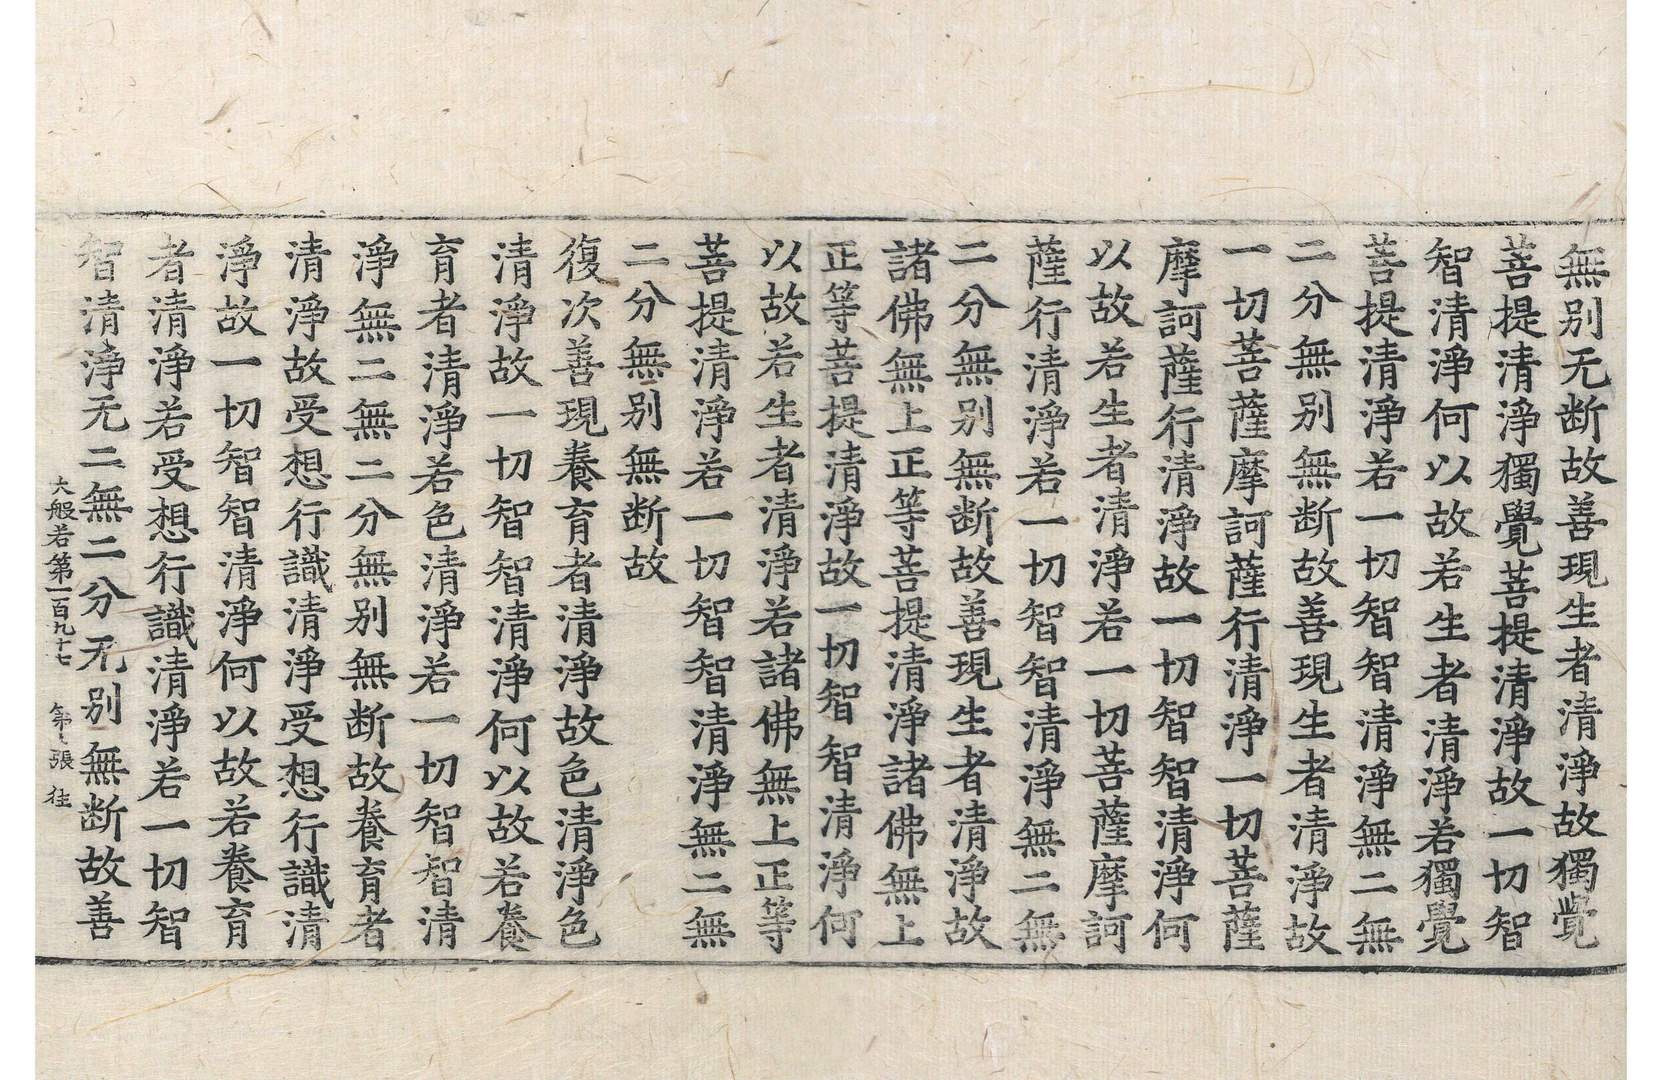 無别无断故善現生者清淨故獨覺
菩提清淨獨覺菩提清淨故一切智
智清淨何以故若生者清淨若獨覺
菩提清淨若一切智智清淨無二無
二分無别無断故善現生者清淨故
一切菩薩摩訶薩行清淨一切菩薩
摩訶薩行清淨故一切智智清淨何
以故若生者清淨若一切菩薩摩訶
薩行清淨若一切智智清淨無二無
二分無别無断故善現生者清淨故
諸佛無上正等菩提清淨諸佛無上
正等菩提清淨故一切智智清淨何
以故若生者清淨若諸佛無上正等
菩提清淨若一切智智清淨無二無
二分無别無断故
復次善現養育者清淨故色清淨色
清淨故一切智智清淨何以故若養
育者清淨若色清淨若一切智智清
淨無二無二分無别無断故養育者
清淨故受想行識清淨受想行識清
淨故一切智智清淨何以故若養育
者清淨若受想行識清淨若一切智
智清淨无二無二分无别無断故善
大般若第一百九十七 第 張